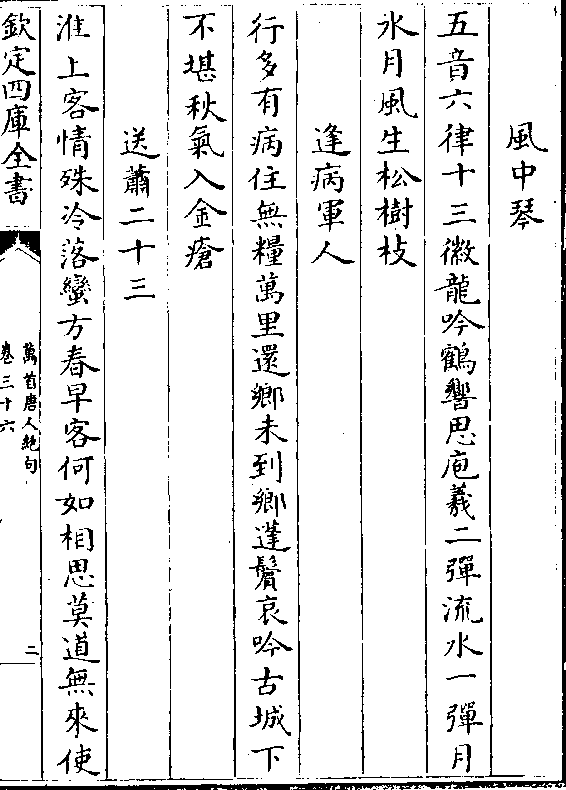 風中琴
五音六律十三徽龍吟鶴響思庖羲二彈流水一彈月
水月風生松樹枝
逢病軍人
行多有病住無糧萬里還鄉未到鄉蓬鬢哀吟古城下
不堪秋氣入金瘡
送蕭二十三
淮上客情殊冷落蠻方春早客何如相思莫道無來使
欽定四庫全書
萬首唐人絕句
卷三十六
二